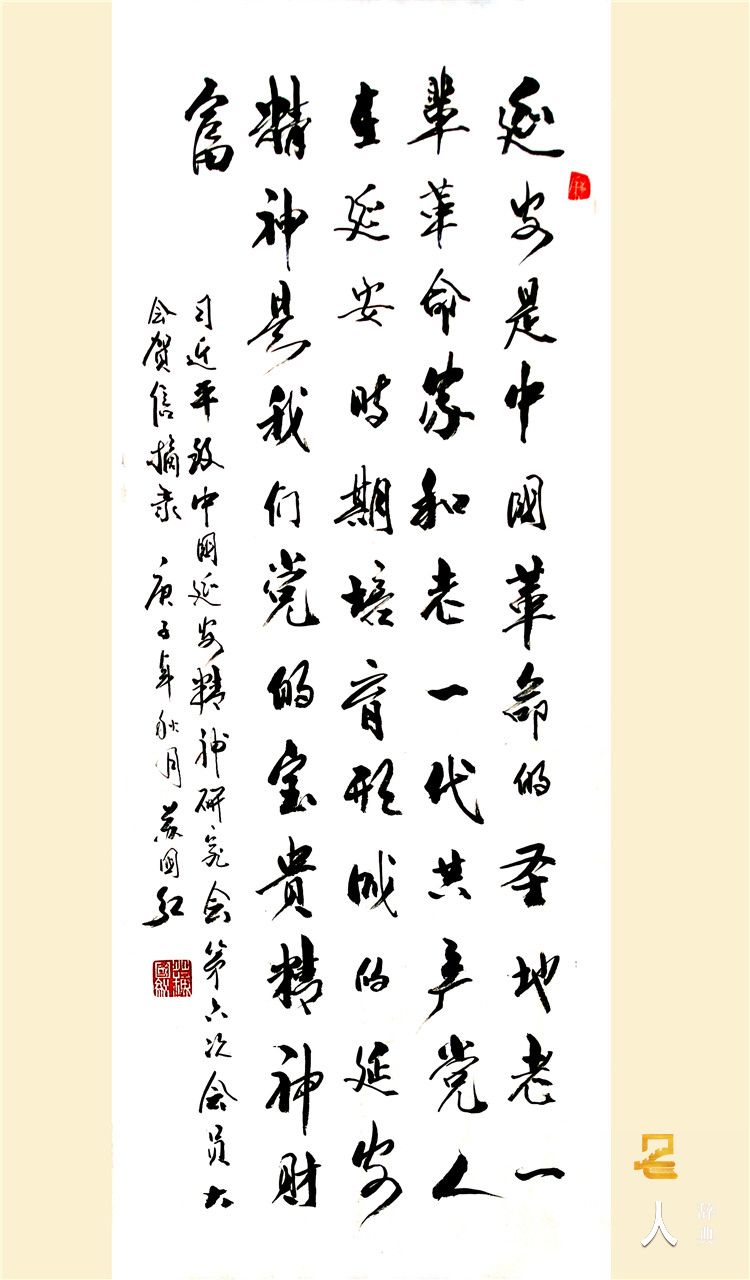 延安是中國革命的圣地老一
辈革命家和老一代共产党人
在延安时期培育形成的延安
精神是我们党的宝贵精神财
富
习近平致中國延安精神研究会第六次会员大
会贺信摘录 庚子年秋月 苏國红
名人
辞典